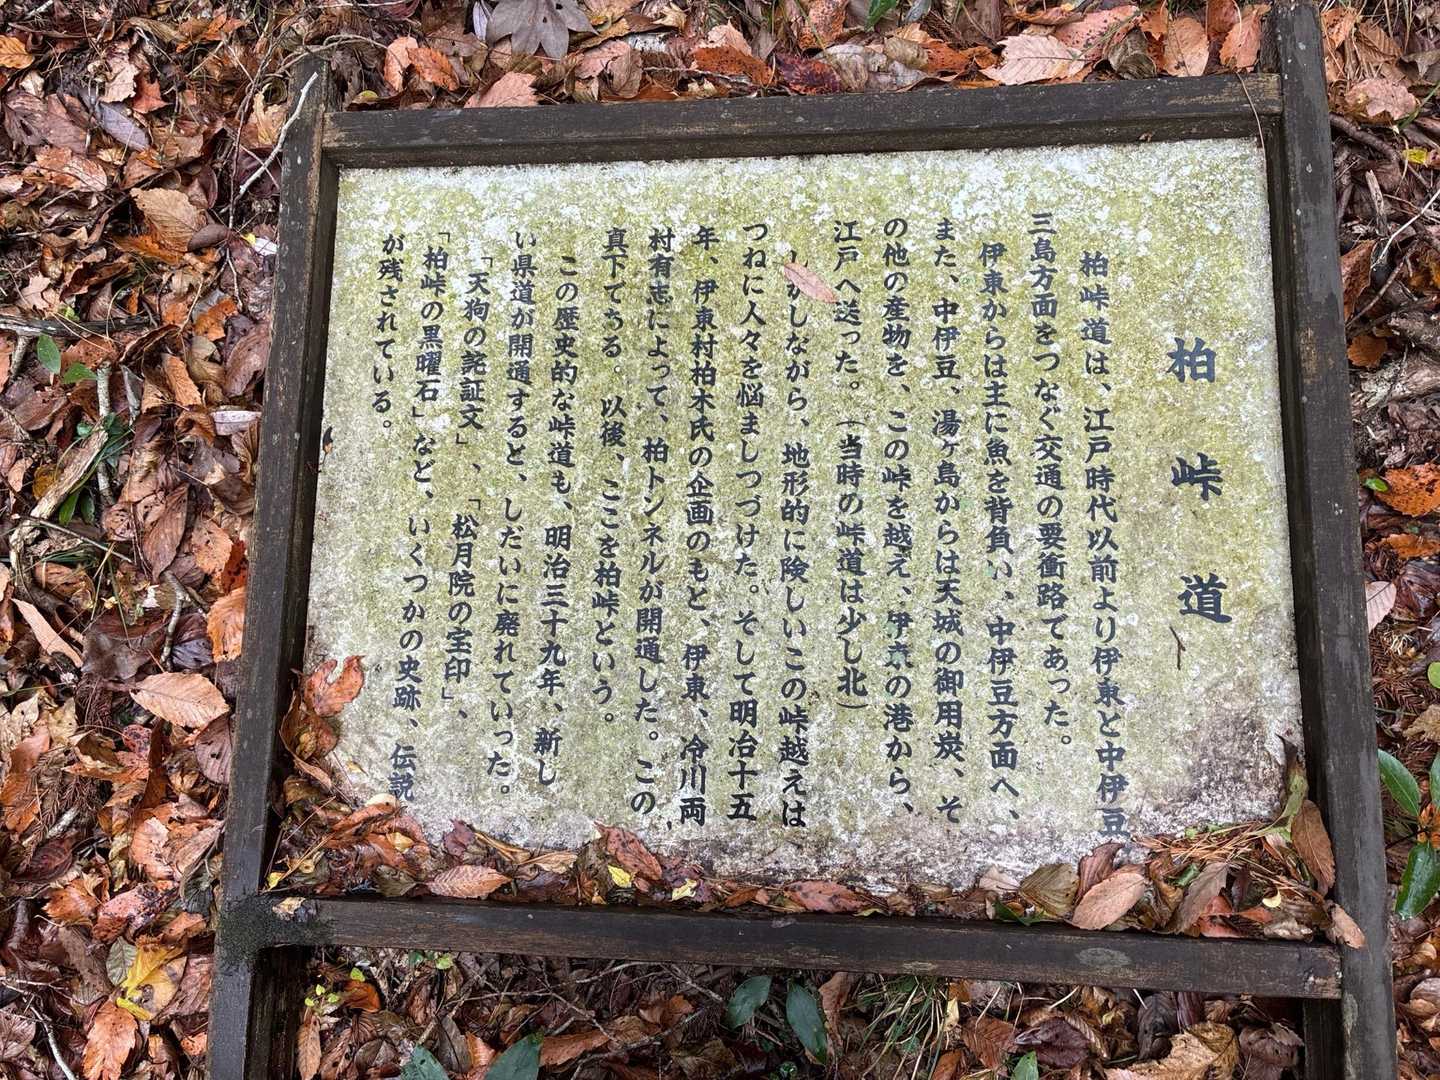 柏峠道
柏峠道は、江戸時代以前より伊東と中伊豆
三島方面をつなぐ交通の要衝路であった。
伊東からは主に魚を背負い、中伊豆方面へ、
また、中伊豆、湯ヶ島からは天城の御用炭、そ
の他の産物を、この峠を越え、伊東の港から、
江戸へ送った。(当時の峠道は少し北)
しかしながら、地形的に険しいこの峠越えは
つねに人々を悩ましつづけた。そして明治十五
年、伊東村柏木氏の企画のもと、伊東、冷川両
村有志によって、柏トンネルが開通した。この
真下である。以後、ここを柏峠という。
この歴史的な峠道も、明治三十九年、新し
い県道が開通すると、しだいに廃れていった。
「天狗の詫証文」、「松月院の宝印」、
「柏峠の黒曜石」など、いくつかの史跡、伝説
が残されている。